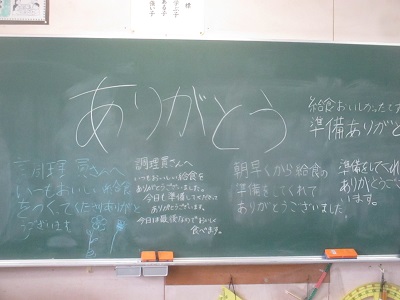 ありがとう
給食おいしかったです
準備ありがと
調理員さんへ
いつもおいしい給食
をつくてくださりありがと
うございます
調理員さんへ
いつもおいしい給食を
ありがとうございました。
今日も準備してくださって
ありがとうございます。
今日は最後なのでおいしく
食べます。
朝早くから給食の
準備をしてくれて
ありがとうございました
準備をしてくれ
ありがとうござ
います。